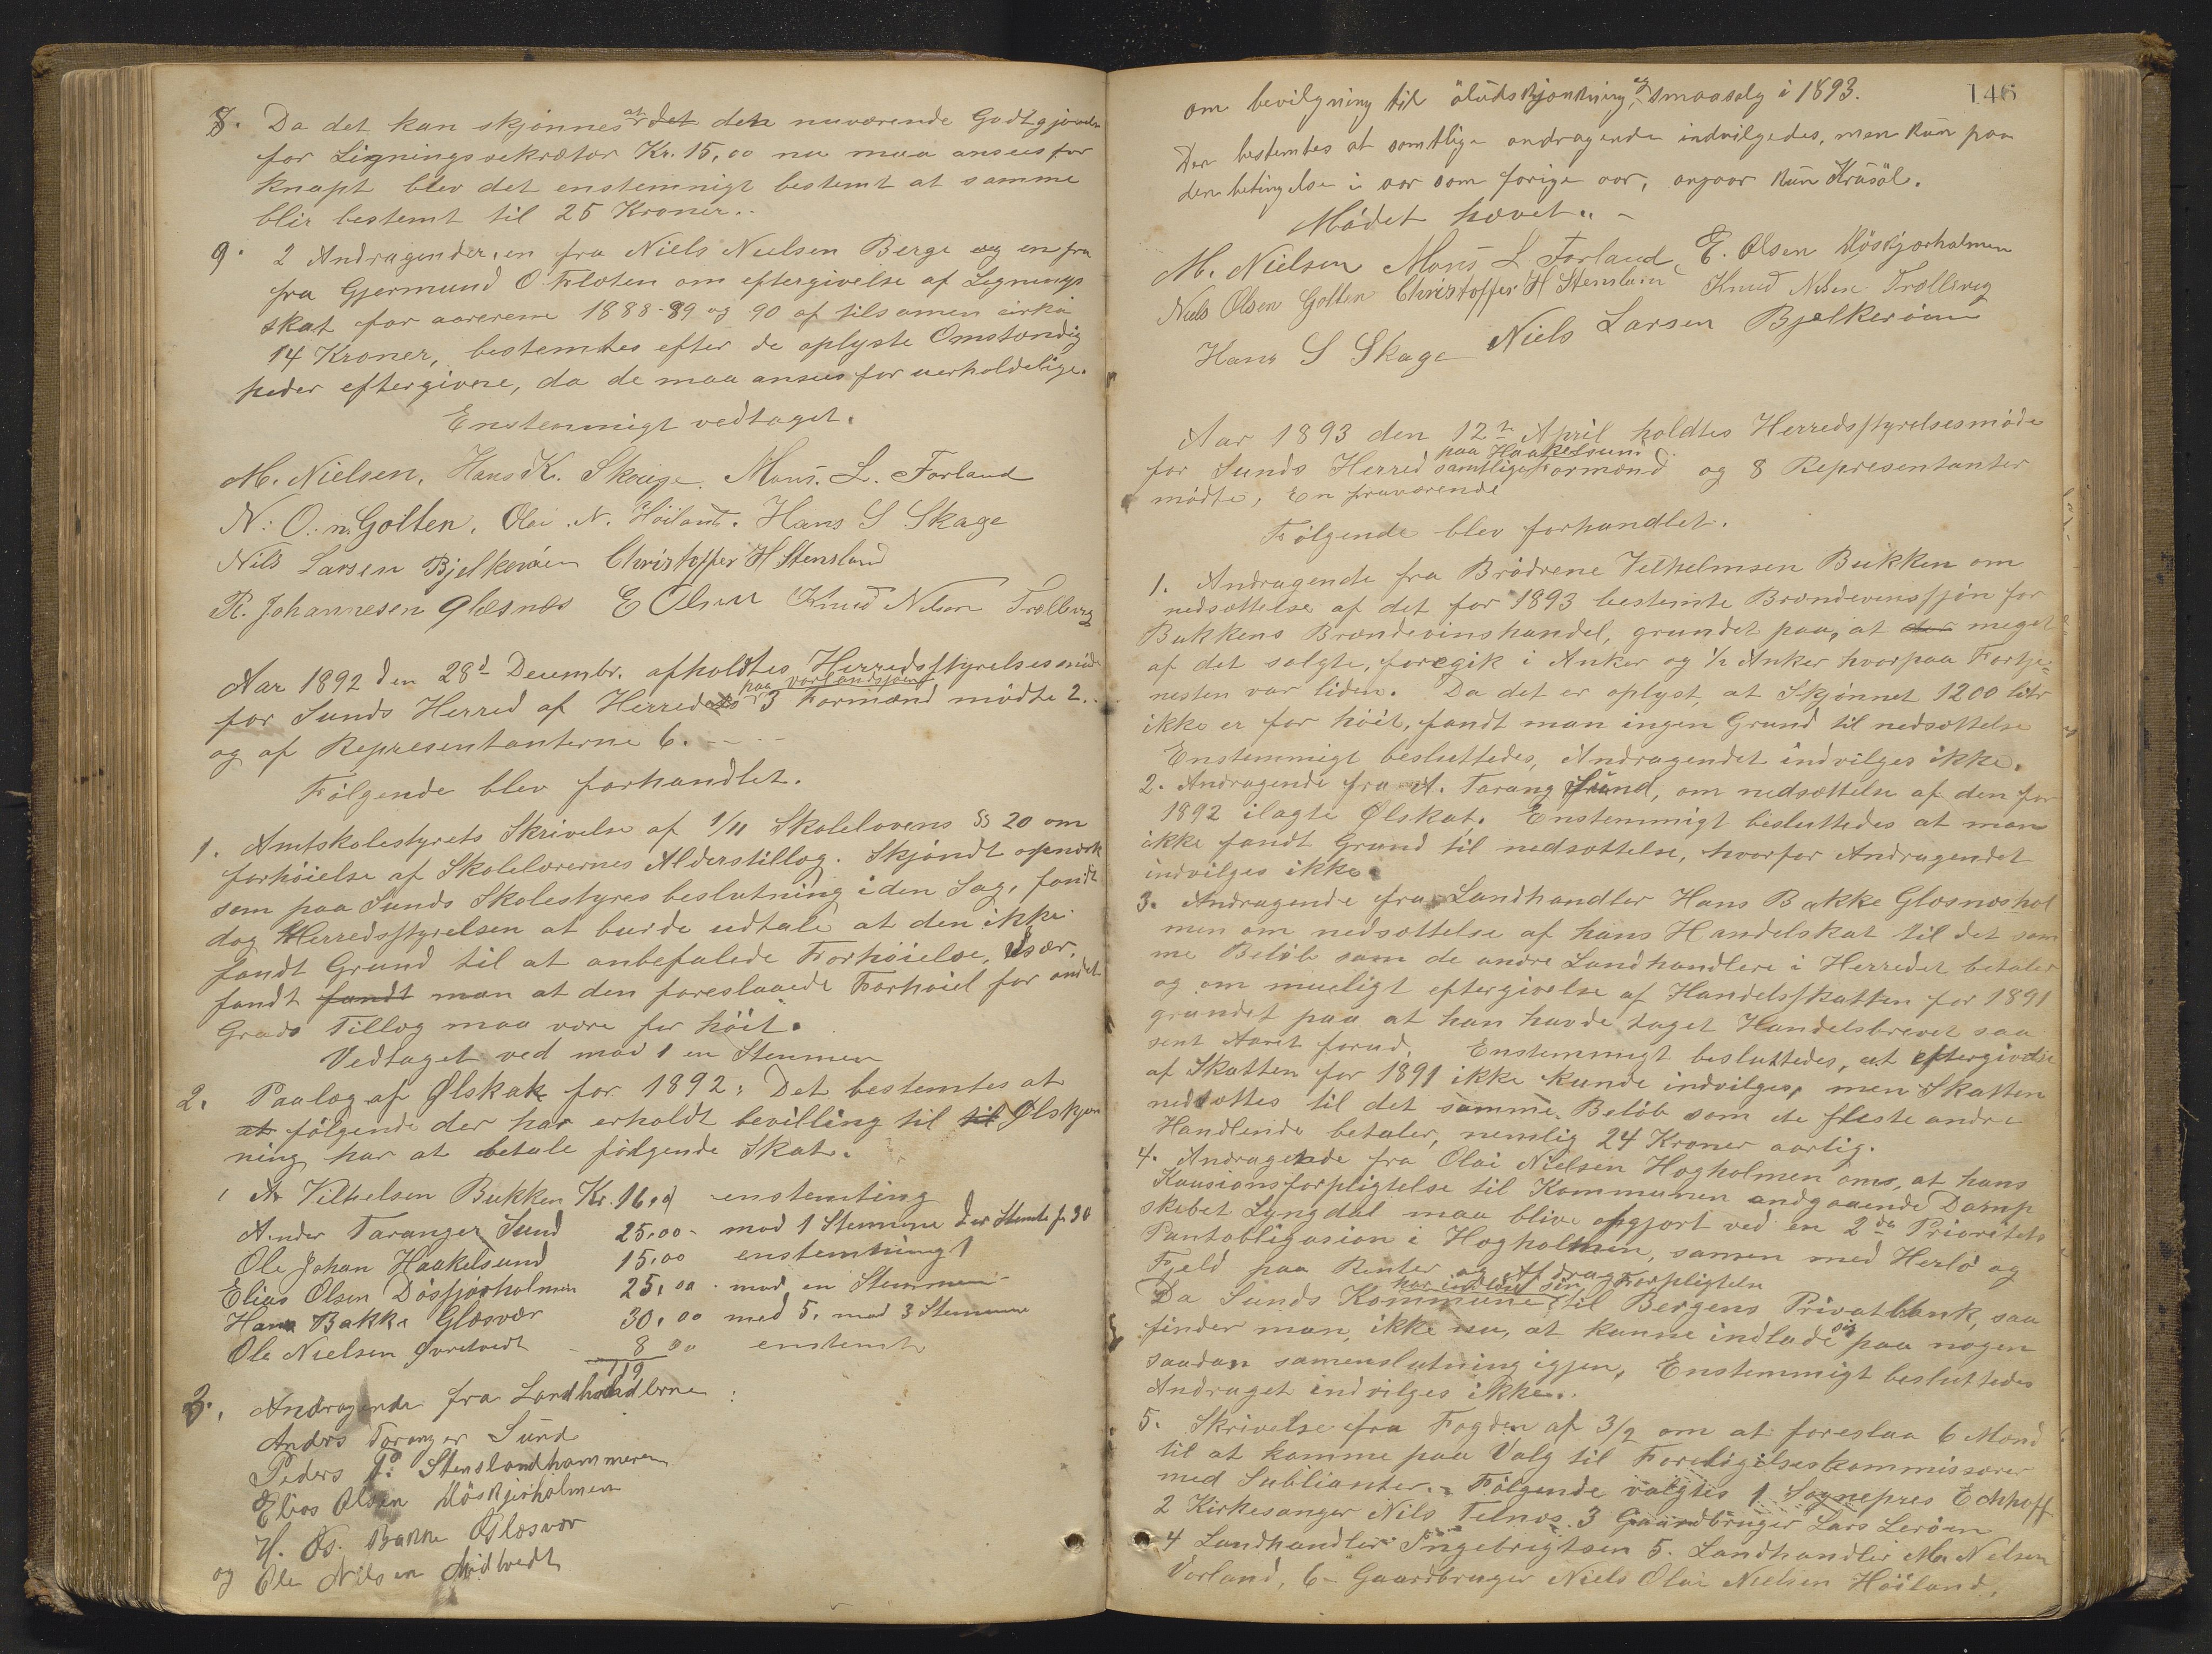 8. Da det kan skjönnes at det den nuværende Godtgjörelse
for Ligningssekretær Kr. 15,00 nu maa ansees for
knapt blev det enstemnigt bestemt at samme
blir bestemt til 25 Kroner..
9. 2 Andragender, en fra Niels Nielsen Berge og en fra
fra Gjermund O Flöten om eftergivelse af Lignings
skat for aarerene 1888-89 og 90 af tilsamen cirka
14 Kroner, bestemtes efter de oplyste Omstændig
heder eftergivne, da de maa ansees for uerholdelige.
Enstemmigt vedtaget.
M. Nielsen, Hans K. Skauge. Mons. L. Forland
N. O. n. Golten. Olai N. Höiland. Hans S Skage
Nils Larsen Bjelkeröen Christoffer H Stensland
R. Johannesen Glæsnæs E Olsen Knud Nilsen Trællevig
Aar 1892 den 28d Decembr. afholdtes Herredsstyrelsesmöde
paa Vorlandsjöen
for Sunds Herred af Herredets 3 Formænd mödte 2..
og af Representanterne 6. - - -
Fölgende blev forhandlet.
1. Amtskolestyrets Skrivelse af 1/11 Skolelovens § 20 om
forhöielse af Skolelærernes Alderstillæg. Skjöndt opmærk
som paa Sunds Skolestyres beslutning i den Sag, fandt
dog Herredsstyrelsen at burde udtale at den ikke
fandt Grund til at anbefalede Forhöielse, Især.
fandt fandt man at den foreslaaede Forhöiel for andet
Grads Tillæg maa være for höit.
Vedtaget ved mod 1 en Stemmer
2. Paalæg af Ølskat for 1892: Det bestemtes at
at fölgende der har erholdt bevilling til til Ølskjen
ning har at betale fölgende Skat.
A Vilhelsen Bukken Kr. 16,00 enstemting
Ander Taranger Sund 25,00 - mod 1 Stemme der Stemte for 30
Ole Johan Haakelsund 15,00 enstemning
Elias Olsen Dösjörholmen 25,00 . mod en Stemmen -
Hans Bakke Glæsvær 30,00 med 5. mod 3 Stemme
Ole Nielsen Øvretvedt - 8 00 enstemt
119
3. Andragende fra Landhandlerne:
Anders Taranger Sund
Peders P. Stenslandhammeren
Elias Olsen Döskjærholmen
H. Bakke Glæsvær
og Ole Nilsen Midtvedt
146
om bevilgning til öludskjænkning og smaasalg i 1893.
Der bestemtes at samtlige andragender indvilgedes, men kun paa
den betingelse i aar som forige aar, angaar kun Krusöl.
Mödet hævet. -
M. Nielsen Mons L Forland, E. Olsen Döskjærholmen
Niels Olsen Golten Christoffer H Stensland Knud Nilsen Trællevig
Hans S Skage Niels Larsen Bjelkeröen
Aar 1893 den 12te April holdtes Herredsstyrelsesmöde
paa Haakelsund
for Sunds Herred samtlige Formænd og 8 Representanter
mödte, En fraværende
Fölgende blev forhandlet.
1. Andragende fra Brödrene Velhelmsen Bukken om
nedsættelse af det for 1893 bestemte Brændevinsskjön for
Bukkens Brændevinshandel, grundet paa, at der meget
af det solgte, foregik i Anker og 1/2 Anker hvorpaa Fortje-
nesten var liden. Da det er oplyst, at Skjönnet 1200 litr
ikke er for höit, fandt man ingen Grund til nedsættelse
Enstemmigt besluttedes, Andragendet indvilges ikke.
2. Andragende fra A. Tarang Sund, om nedsættelse af den for
1892 ilagte Ølskat. Enstemmigt besluttedes at man
ikke fandt Grund til nedsættelse, hvorfor Andragendet
indvilges ikke.
3. Andragende fra Landhandler Hans Bakke Glæsnæshol
men om nedsættelse af hans Handelskat til det sam
me Belöb som de andre Landhandlere i Herredet betaler
og om mueligt eftergivelse af Handelsskatten for 1891
grundet paa at han havde taget Handelsbrevet saa
sent Aaret forud. Enstemmigt besluttedes, at eftergivelse
af Skatten for 1891 ikke kunde indvilges, men Skatten
nedsættes til det samme Belöb som de fleste andre
Handlende betaler, nemlig 24 Kroner aarlig.
4. Andragende fra Olai Nielsen Hogholmen om, at hans
Kausionsforpligtelse til Kommunen angaaende Damp
skebet Lyngdal maa blive opgjort ved en 2den Prioritets
Pantobligasion i Hogholmen, samen med Herlö og
Fjeld paa Renter og Afdrag
har indlöst sin Forpligteln
Da Sunds Kommune til Bergens Privatbank, saa
finder man, ikke nu, at kunne indlade sig paa nogen
saadan samenslutning igjen, Enstemmigt besluttedes
Andraget indvilges ikke..
5. Skrivelse fra Fogden af 3/2 om at foreslaa 6 Mænd
til at komme paa Valg til Forligelseskommissærer
med Sublianter. - Fölgende valgtes 1 Sognepres Eckhoff
2 Kirkesanger Nils Telnæs. 3 Gaardbruger Lars Leröen
4 Landhandler Ingebrigtsen 5. Landhandler M. Nilsen
Vorland, 6 - Gaardbruger Niels Olai Nielsen Höiland.